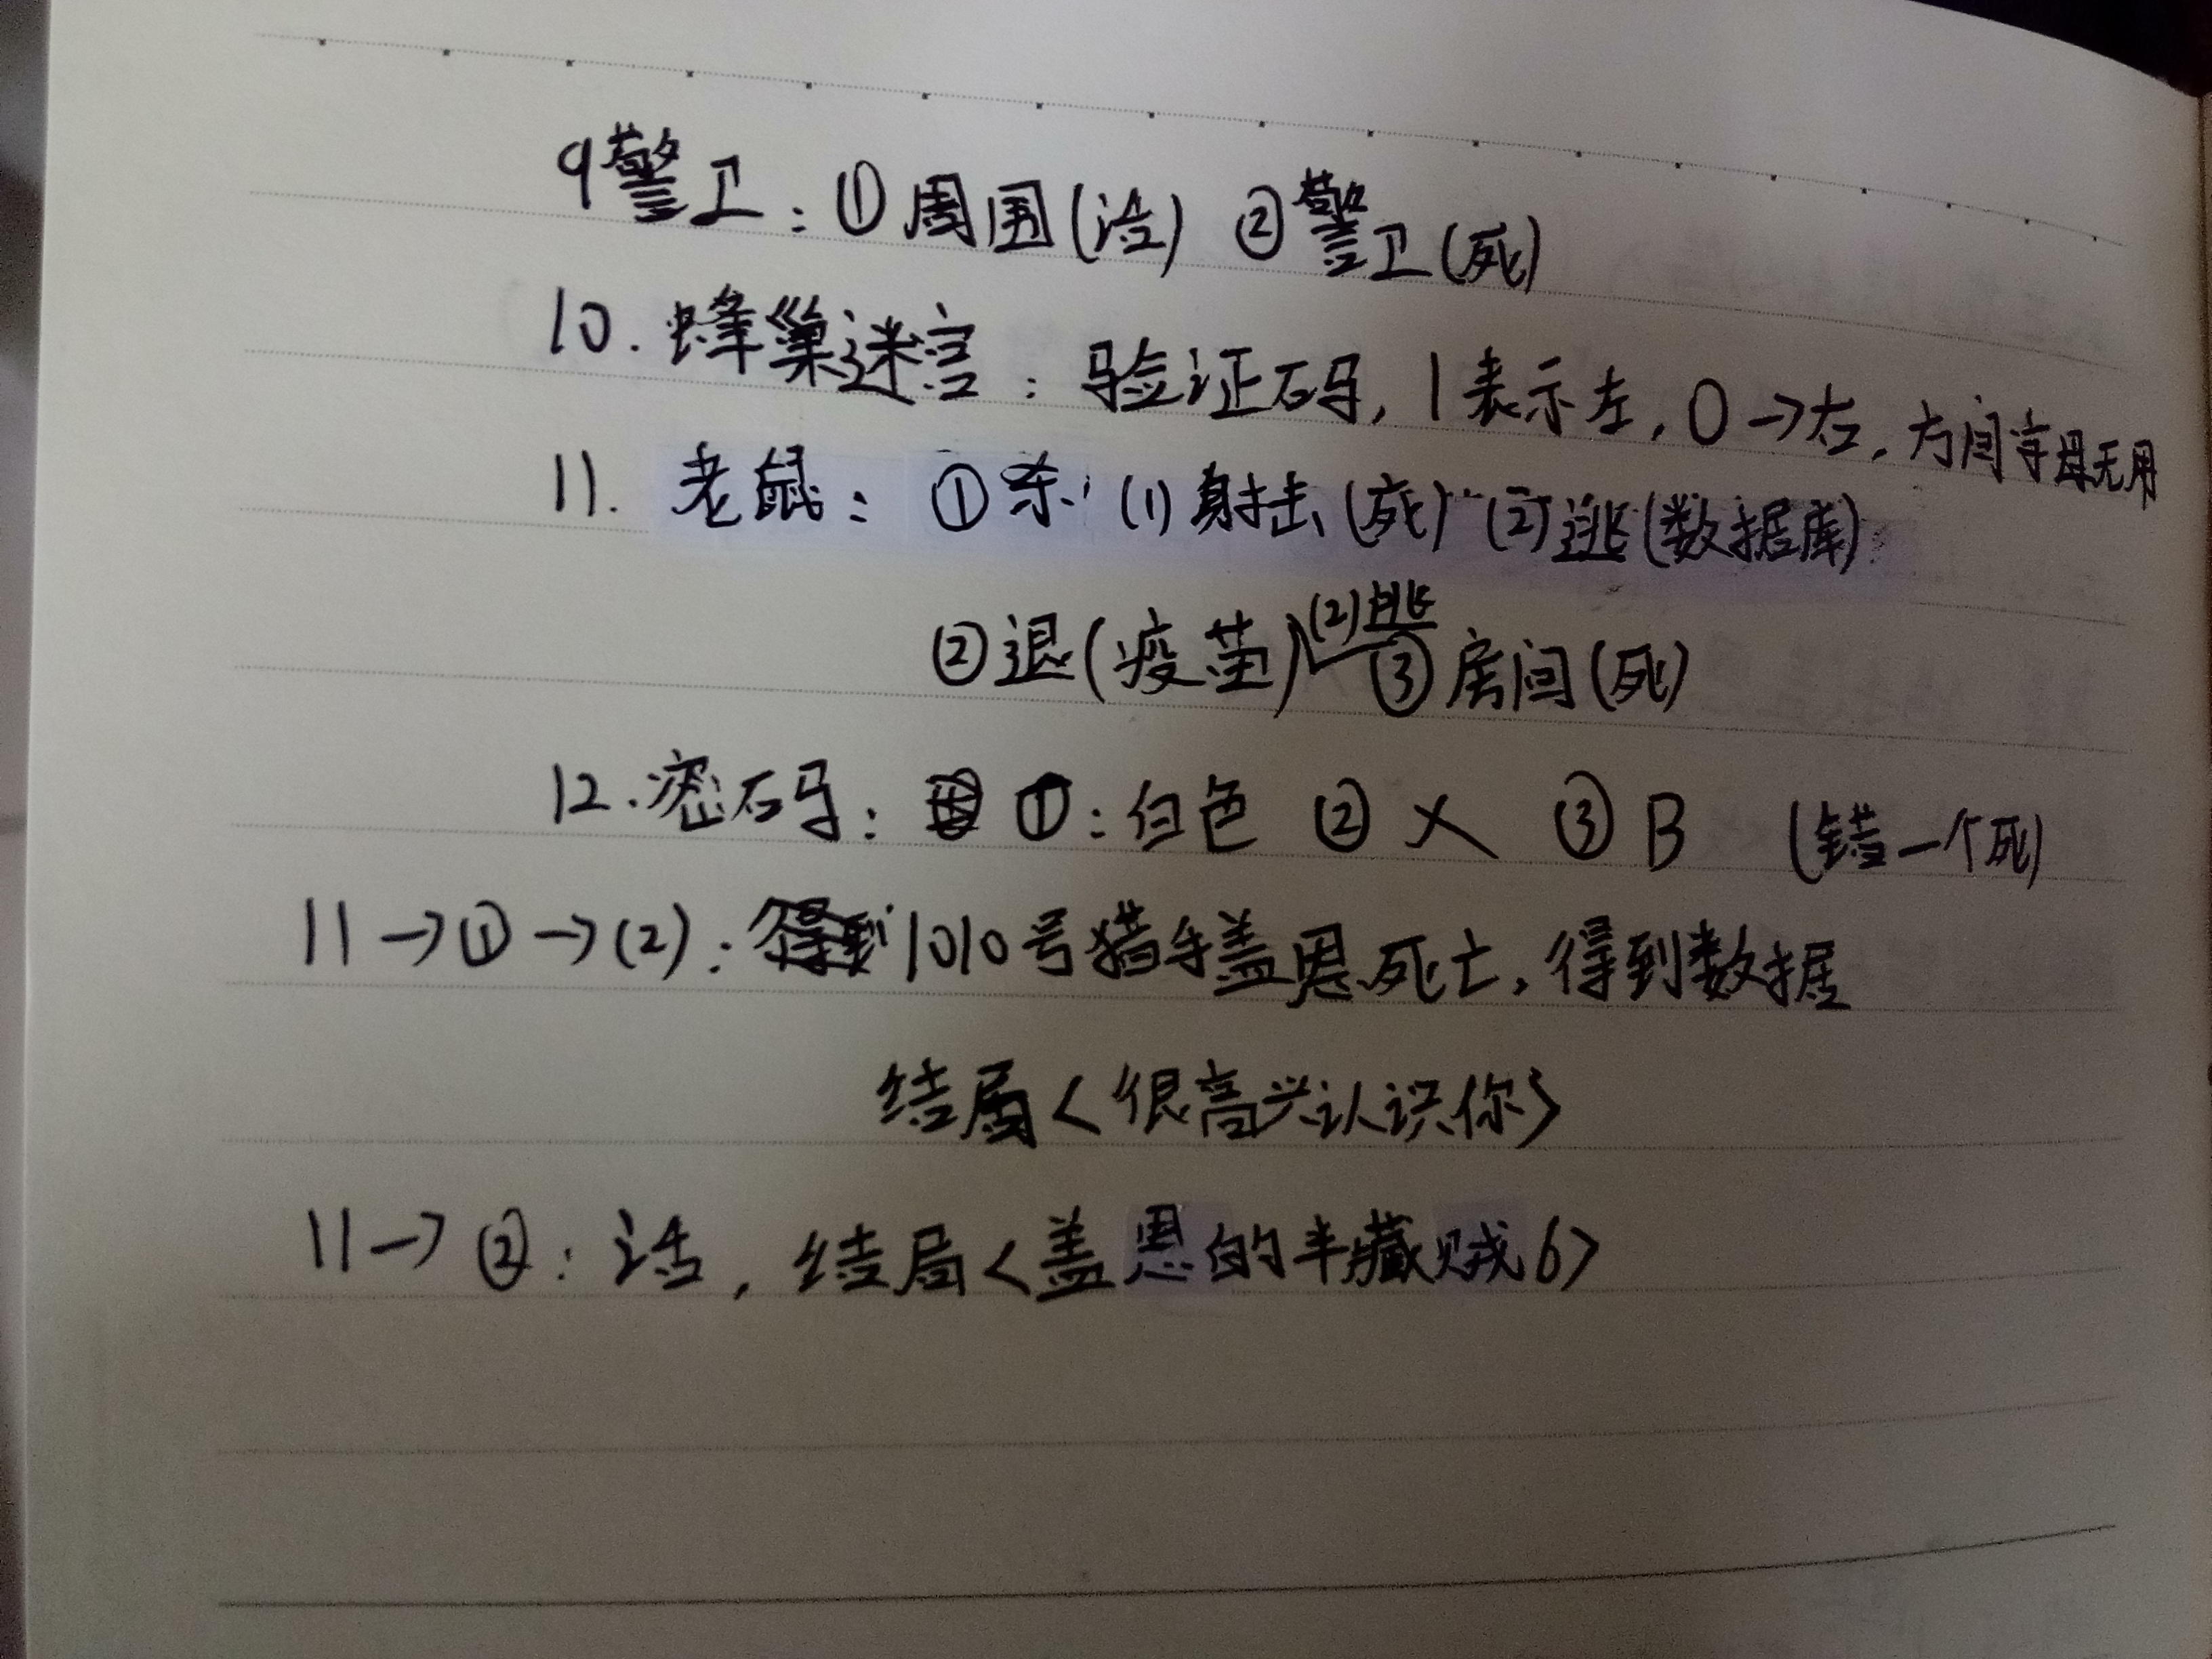 9警卫：①周围(活) ②警卫(死)
10.蜂巢迷宫：验证码,1表示左,0→右,方向字母无用
11.老鼠：①杀 (1)射击(死) (2)逃(数据库)
②退(疫苗) (2)逃 ③房间(死)
12.密码：①：白色 ②X ③B (错一个死)
11→①→(2)：1010号猎手盖恩死亡,得到数据
结局<很高兴认识你>
11→②：活,结局<盖恩的半藏贼6>